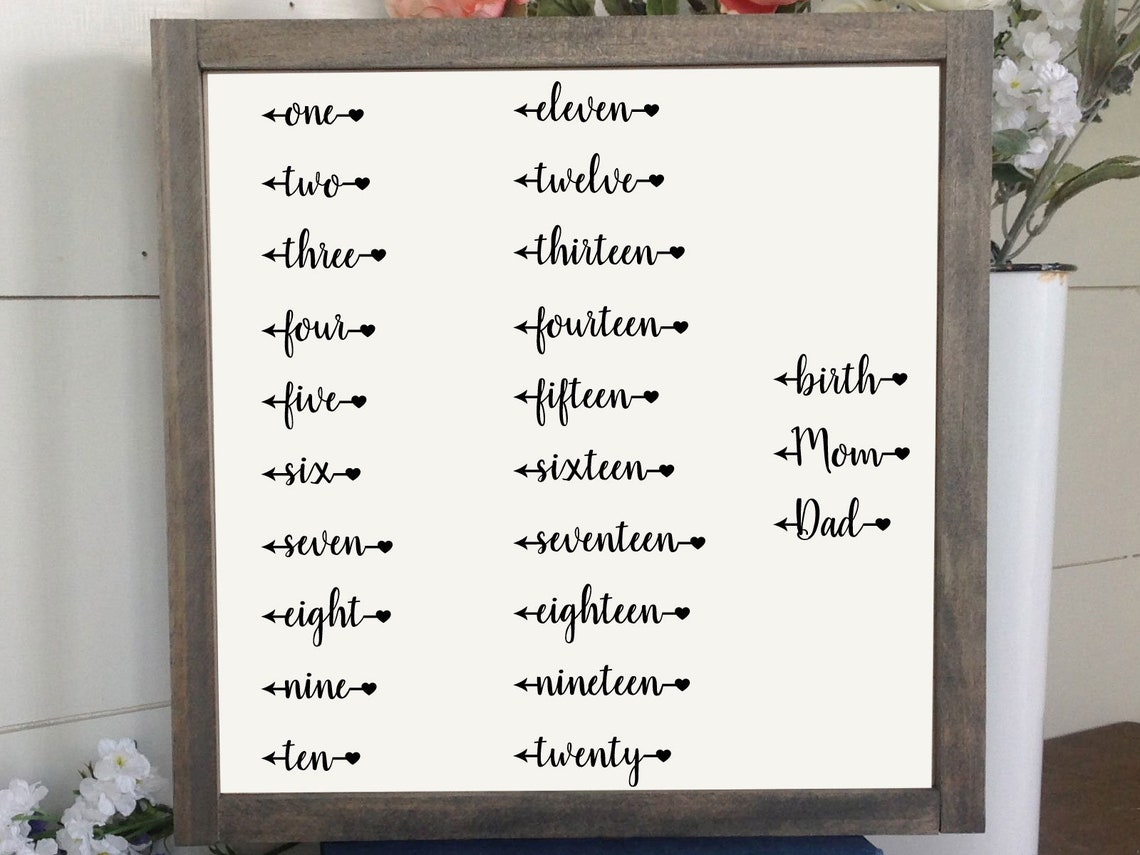 one
two
three
four
five
six
seven
eight
nine
ten
eleven
twelve
thirteen
fourteen
fifteen
sixteen
seventeen
eighteen
nineteen
twenty
birth
Mom
Dad